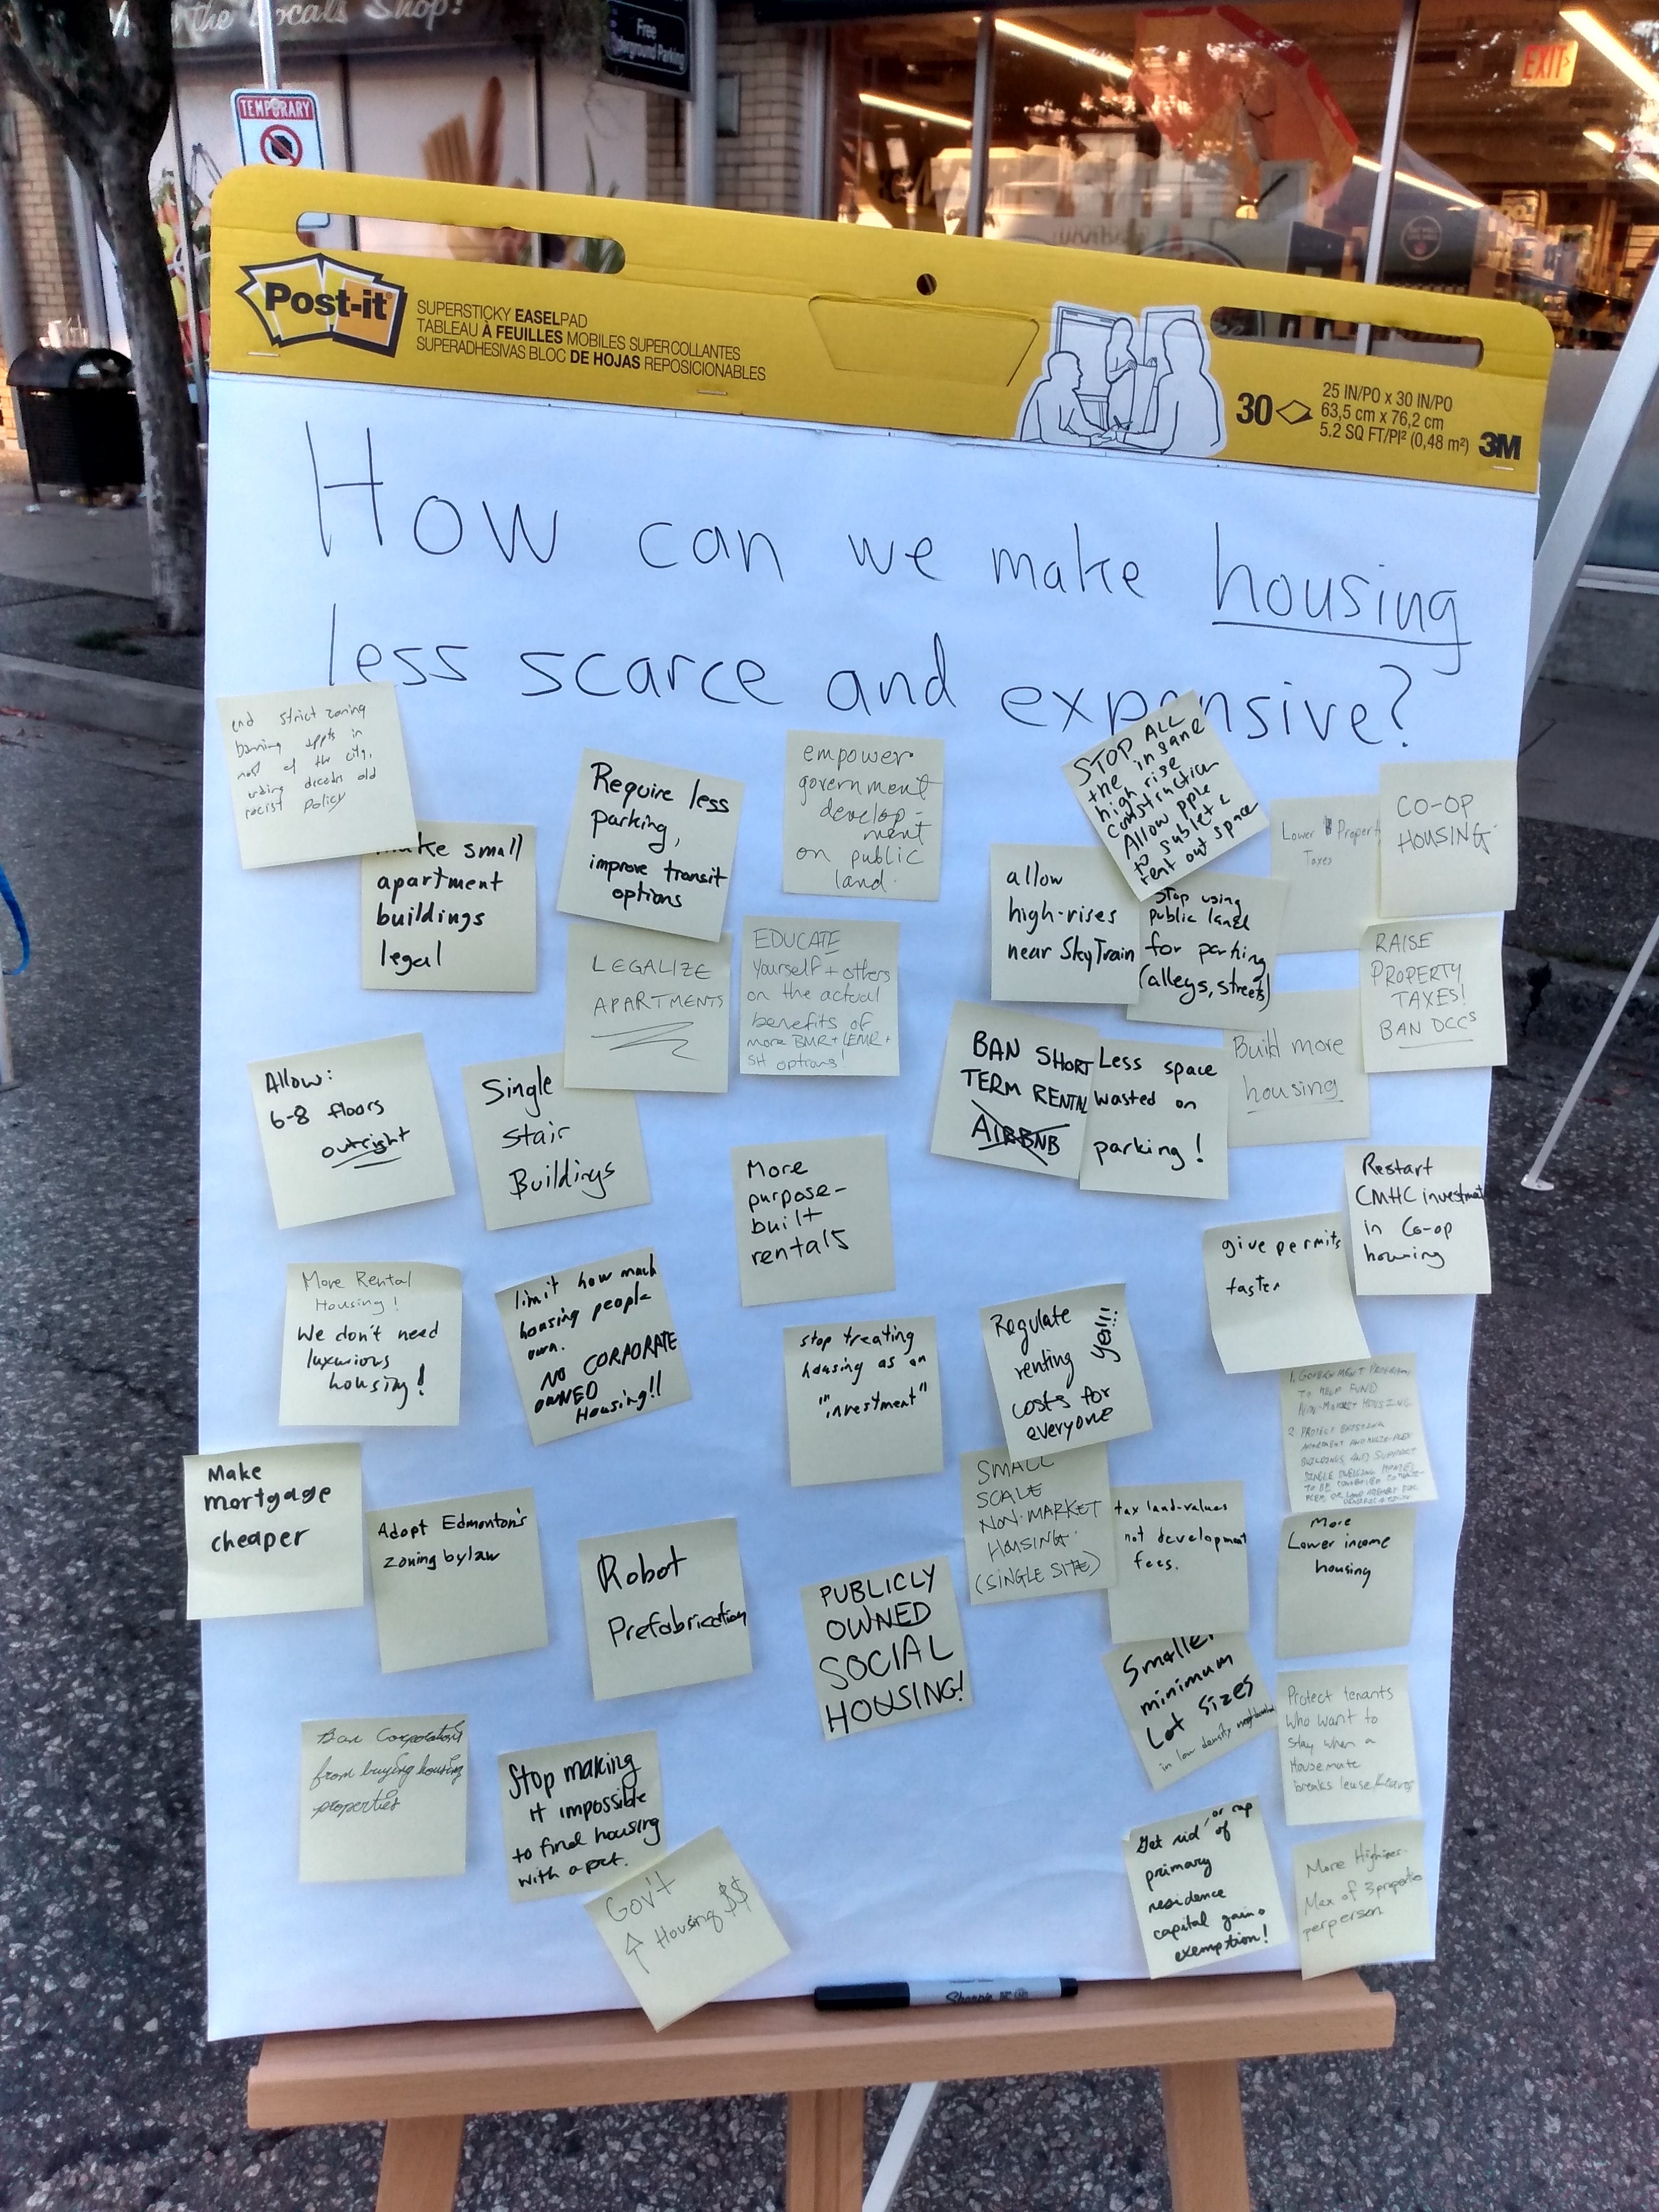 the Locals Shop!
Free
Underground Parking
EXIT
TEMPORARY
Post-it
SUPERSTICKY EASELPAD
TABLEAU À FEUILLES MOBILES SUPERCOLLANTES
SUPERADHESIVAS BLOC DE HOJAS REPOSICIONABLES
30
25 IN/PO x 30 IN/PO
63,5 cm x 76,2 cm
5.2 SQ FT/PI² (0,48 m²)
3M
How can we make housing
less scarce and expensive?
end strict zoning
banning appts in
most of the city,
ending decades old
racist policy
make small
apartment
buildings
legal
Require less
parking,
improve transit
options
empower
government
develop-
ment
on public
land.
STOP ALL
the insane
high rise
construction
Allow pple
to sublet &
rent out space
Lower Property
Taxes
CO-OP
HOUSING
allow
high-rises
near SkyTrain
Stop using
public land
for parking
(alleys, streets)
LEGALIZE
APARTMENTS
EDUCATE
yourself + others
on the actual
benefits of
more BMR + LEMR +
SH options!
RAISE
PROPERTY
TAXES!
BAN DCCs
Allow:
6-8 floors
outright
Single
Stair
Buildings
BAN SHORT
TERM RENTAL
AIRBNB
Less space
wasted on
parking!
Build more
housing
More
purpose-
built
rentals
Restart
CMHC investment
in Co-op
housing
give permits
faster
More Rental
Housing!
We don't need
luxurious
housing!
limit how much
housing people
own.
NO CORPORATE
OWNED
Housing!!
stop treating
housing as an
"investment"
Regulate
renting
costs for
everyone
yes!!!
1. GOVERNMENT PROGRAM
TO HELP FUND
NON-MARKET HOUSING
2. PROTECT EXISTING
APARTMENT AND MULTI-PLEX
BUILDINGS AND SUPPORT
SINGLE DWELLING HOMES
TO BE CONVERTED TO MULTI-
Make
mortgage
cheaper
Adopt Edmonton's
zoning bylaw
Robot
Prefabrication
SMALL
SCALE
NON-MARKET
HOUSING
(SINGLE SITE)
tax land-values
not development
fees.
More
Lower income
housing
PUBLICLY
OWNED
SOCIAL
HOUSING!
Smaller
minimum
Lot sizes
in low density
Protect tenants
who want to
stay when a
Housemate
breaks lease/leaves
Ban Corporations
from buying housing
properties
Stop making
it impossible
to find housing
with a pet.
Gov't
↑ Housing $$
Get rid or cap of
primary
residence
capital gains
exemption!
More Highrises.
Max of 3 properties
per person
Sharpie